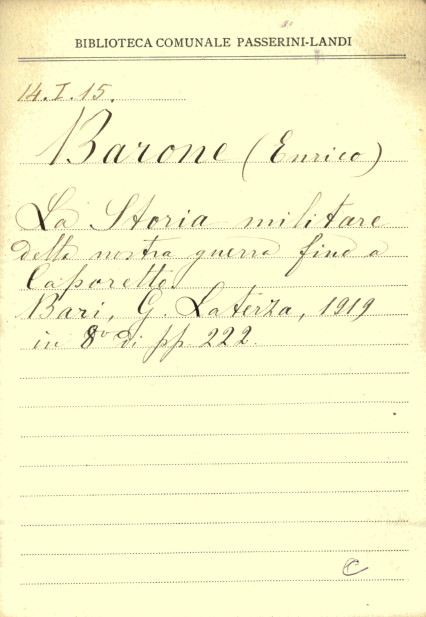 BIBLIOTECA COMUNALE PASSERINI-LANDI
14.I.15.
Barone (Enrico)
La Storia militare
della nostra guerra fino a
Caporetto.
Bari, G. Laterza, 1919
in 8º di pp 222.
C